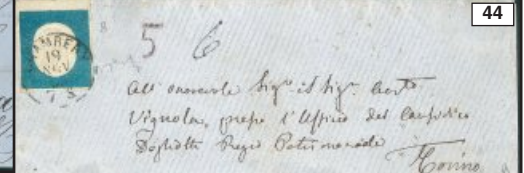 44
5 6
CHAMBERY
19
All' onorevole Sig.r il Sig.r
Vignola, presso l'Uffizio del Causidico
Regio Patrimoniale
Torino